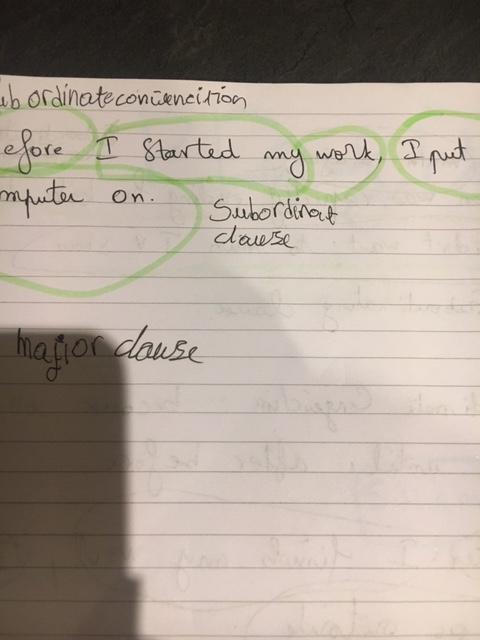 ubordinateconvencition
efore I started my work, I put
mputer on.
Subordinat
clause
major clause